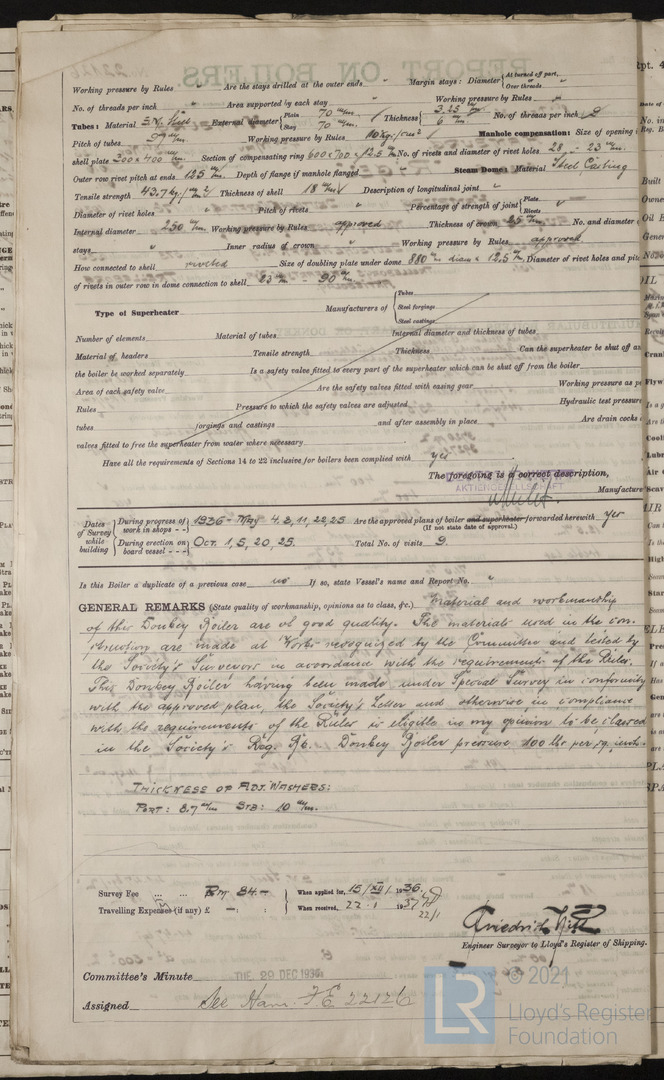 Working pressure by Rules " Are the stays drilled at the outer ends " Margin stays: Diameter { At turned off part, or Over threads "
No. of threads per inch " Area supported by each stay " Working pressure by Rules "
Tubes: Material S.M. Steel External diameter { Plain 70 m/m Stay 70 m/m Thickness { 3.25 m/m 6 m/m No. of threads per inch
Pitch of tubes Working pressure by Rules 10 Kg/cm² Manhole compensation: Size of opening
shell plate 300 x 400 m/m Section of compensating ring 600 x 700 x 12.5 m/m No. of rivets and diameter of rivet holes 28 - 23 m/m
Outer row rivet pitch at ends 125 m/m Depth of flange if manhole flanged " Steam Dome: Material Steel Casting
Tensile strength 43.7 kg/m² Thickness of shell 18 m/m Description of longitudinal joint "
Diameter of rivet holes " Pitch of rivets " Percentage of strength of joint { Plate Rivets "
Internal diameter 250 m/m Working pressure by Rules approved Thickness of crown 25 m/m No. and diameter
stays " Inner radius of crown " Working pressure by Rules approved
How connected to shell riveted Size of doubling plate under dome 880 m/m diam x 12.5 m/m Diameter of rivet holes and pit
of rivets in outer row in dome connection to shell 23 m/m - 90 m/m
Type of Superheater Manufacturers of { Tubes Steel forgings Steel castings
Number of elements Material of tubes Internal diameter and thickness of tubes
Material of headers Tensile strength Thickness Can the superheater be shut off an
the boiler be worked separately Is a safety valve fitted to every part of the superheater which can be shut off from the boiler
Area of each safety valve Are the safety valves fitted with easing gear Working pressure as pe
Rules Pressure to which the safety valves are adjusted Hydraulic test pressure
tubes forgings and castings and after assembly in place Are drain cocks
valves fitted to free the superheater from water where necessary
Have all the requirements of Sections 14 to 22 inclusive for boilers been complied with yes
The foregoing is a correct description,
AKTIENGESELLSCHAFT
Manufacture
Dates of Survey while building { During progress of work in shops - - 1936 - May 4, 8, 11, 22, 25 Are the approved plans of boiler and superheater forwarded herewith yes
(If not state date of approval.)
During erection on board vessel - - - Oct. 1, 5, 20, 25. Total No. of visits 9.
Is this Boiler a duplicate of a previous case no If so, state Vessel's name and Report No. "
GENERAL REMARKS (State quality of workmanship, opinions as to class, &c.) Material and workmanship
of this Donkey Boiler are of good quality. The materials used in the con-
struction are made at Works recognized by the Committee and tested by
the Society's Surveyors in accordance with the requirements of the Rules.
This Donkey Boiler having been made under Special Survey in conformity
with the approved plan, the Society's Letter and otherwise in compliance
with the requirements of the Rules is eligible in my opinion to be classed
in the Society's Reg. Bk. Donkey Boiler pressure 100 lbs per sq. inch.
THICKNESS OF ADJ. WASHERS:
PORT: 8.7 m/m STB: 10 m/m.
Survey Fee ... ... RM 84.- When applied for, 15/XII/1936.
Travelling Expenses (if any) £ - : : When received, 22.1 1937
22/1
Friedrich
Engineer Surveyor to Lloyd's Register of Shipping.
Committee's Minute TUE. 29 DEC 1936
Assigned See Ham. F.E. 22126
© 2021
LR
Lloyd's Register
Foundation